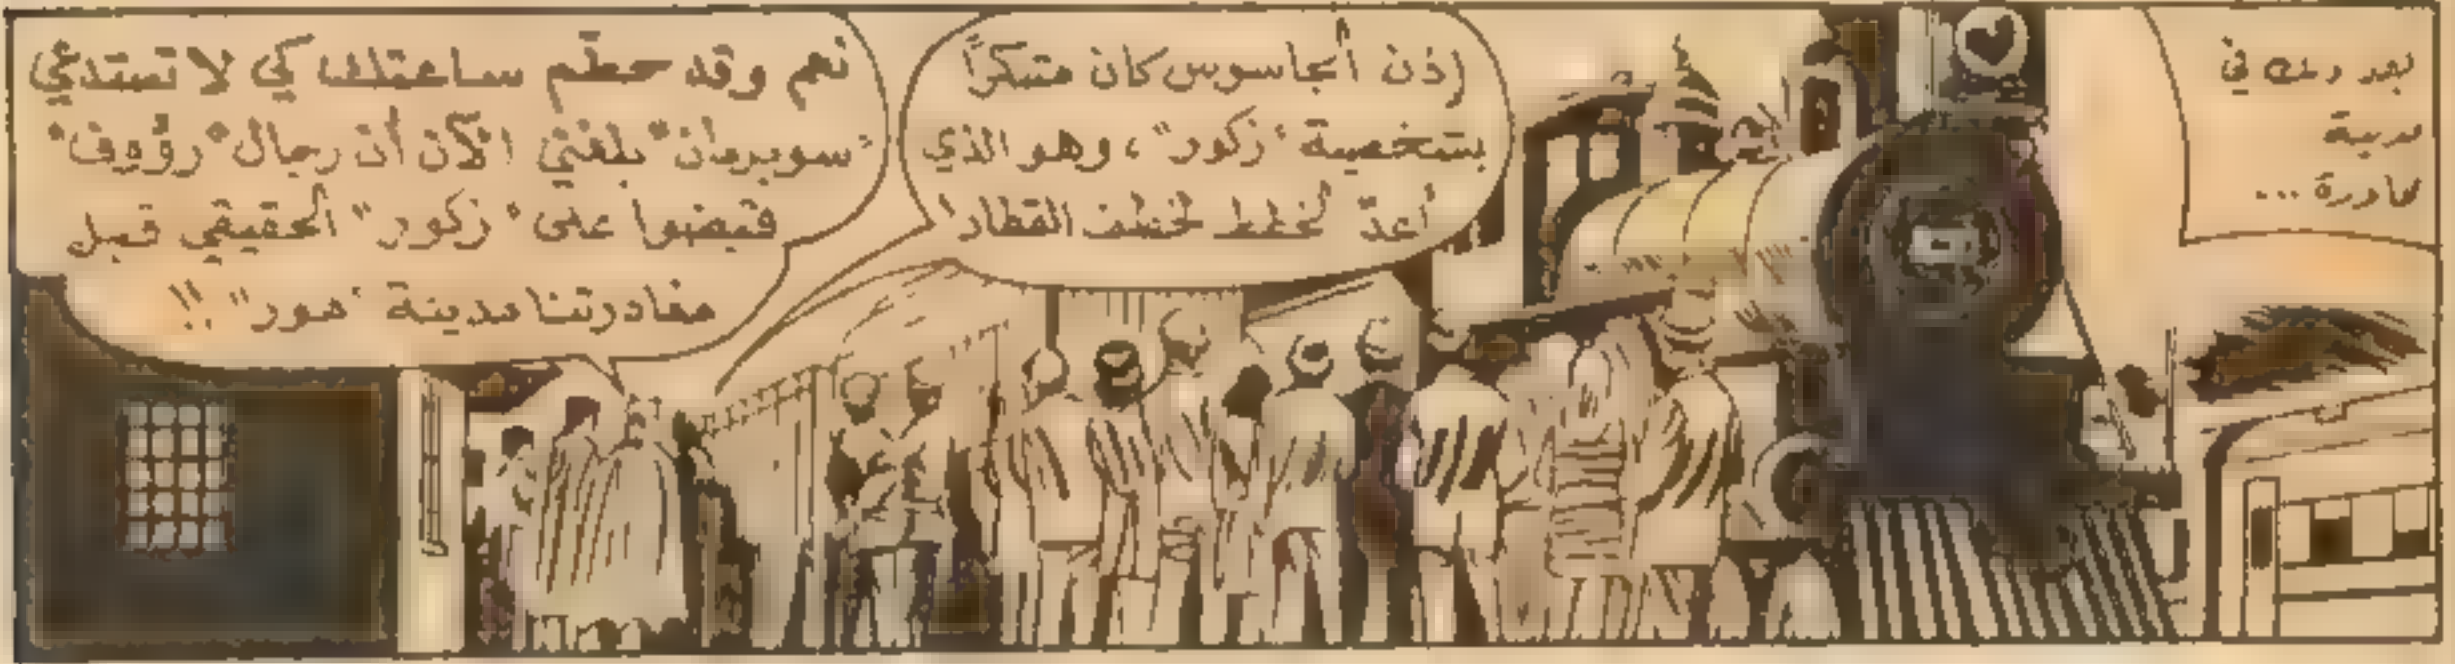 بعد ذلك في
مدينة
كادرة ...
إذن الجاسوس كان متنكراً
بشخصية "زكور"، وهو الذي
أعدّ لخطط لخطف القطار!
نعم وقد حطّم ساعتك كي لا تستدعي
"سوبرمان" بلغني الآن أن رجال "رؤوف"
قبضوا على "زكور" الحقيقي قبل
مغادرتنا مدينة "هور"!!